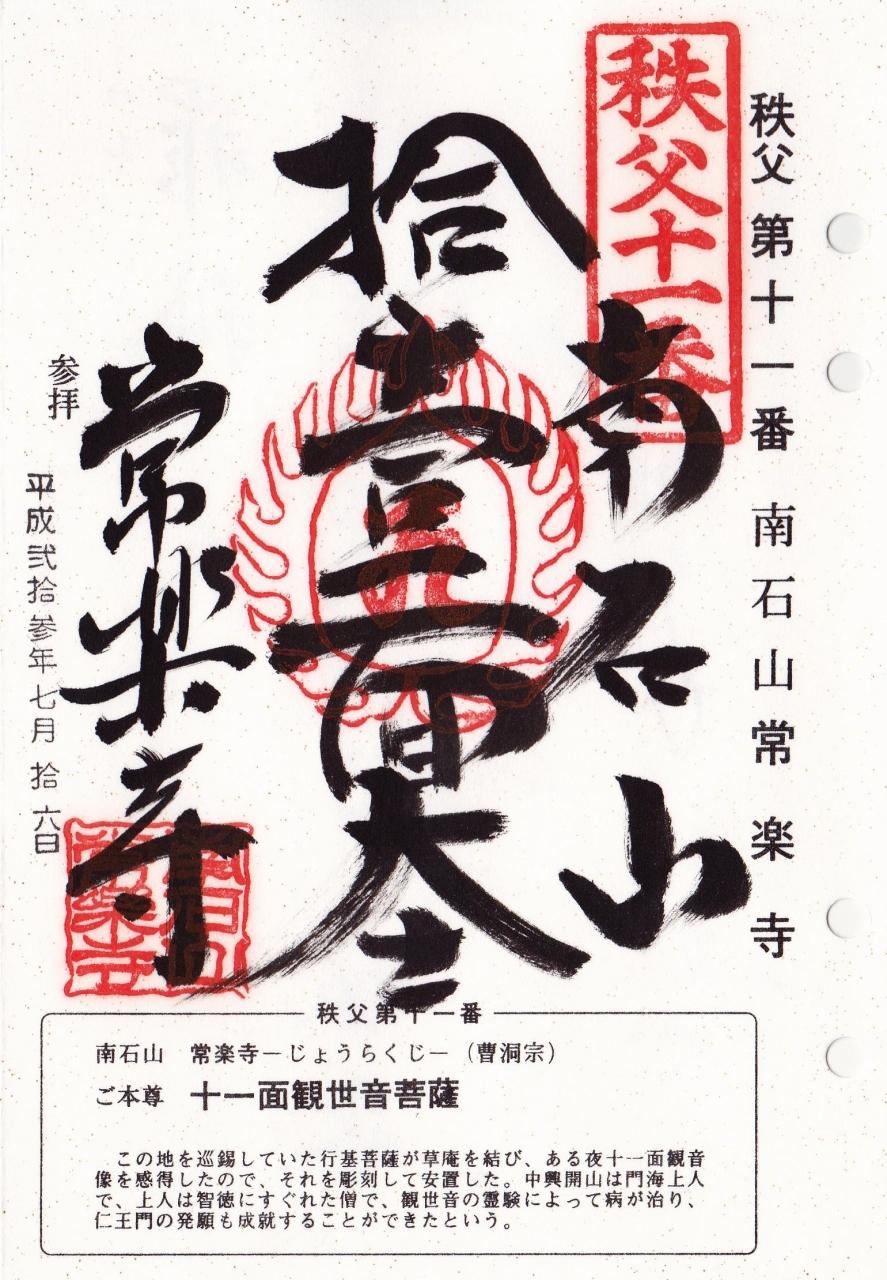 秩父 第十一番 南石山常楽寺
秩父十一番
南石山
拾壹面大士
常楽寺
参拝
平成弐拾参年七月拾六日
秩父第十一番
南石山 常楽寺－じょうらくじ－（曹洞宗）
ご本尊 十一面観世音菩薩
この地を巡錫していた行基菩薩が草庵を結び、ある夜十一面観音
像を感得したので、それを彫刻して安置した。中興開山は門海上人
で、上人は智徳にすぐれた僧で、観世音の霊験によって病が治り、
仁王門の発願も成就することができたという。